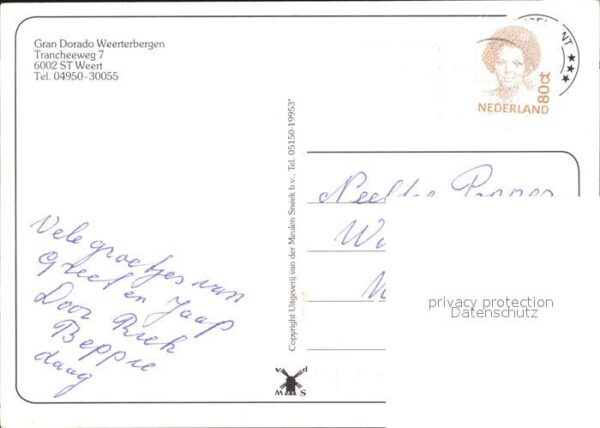 Gran Dorado Weerterbergen
Trancheeweg 7
6002 ST Weert
Tel. 04950-30055
NEDERLAND
80ct
Copyright Uitgeverij van der Meulen Sneek b.v., Tel. 05150-19953*
Vele groetjes van
Greet en Jaap
Door Riek
Beppie
daag
privacy protection
Datenschutz
v d
M S